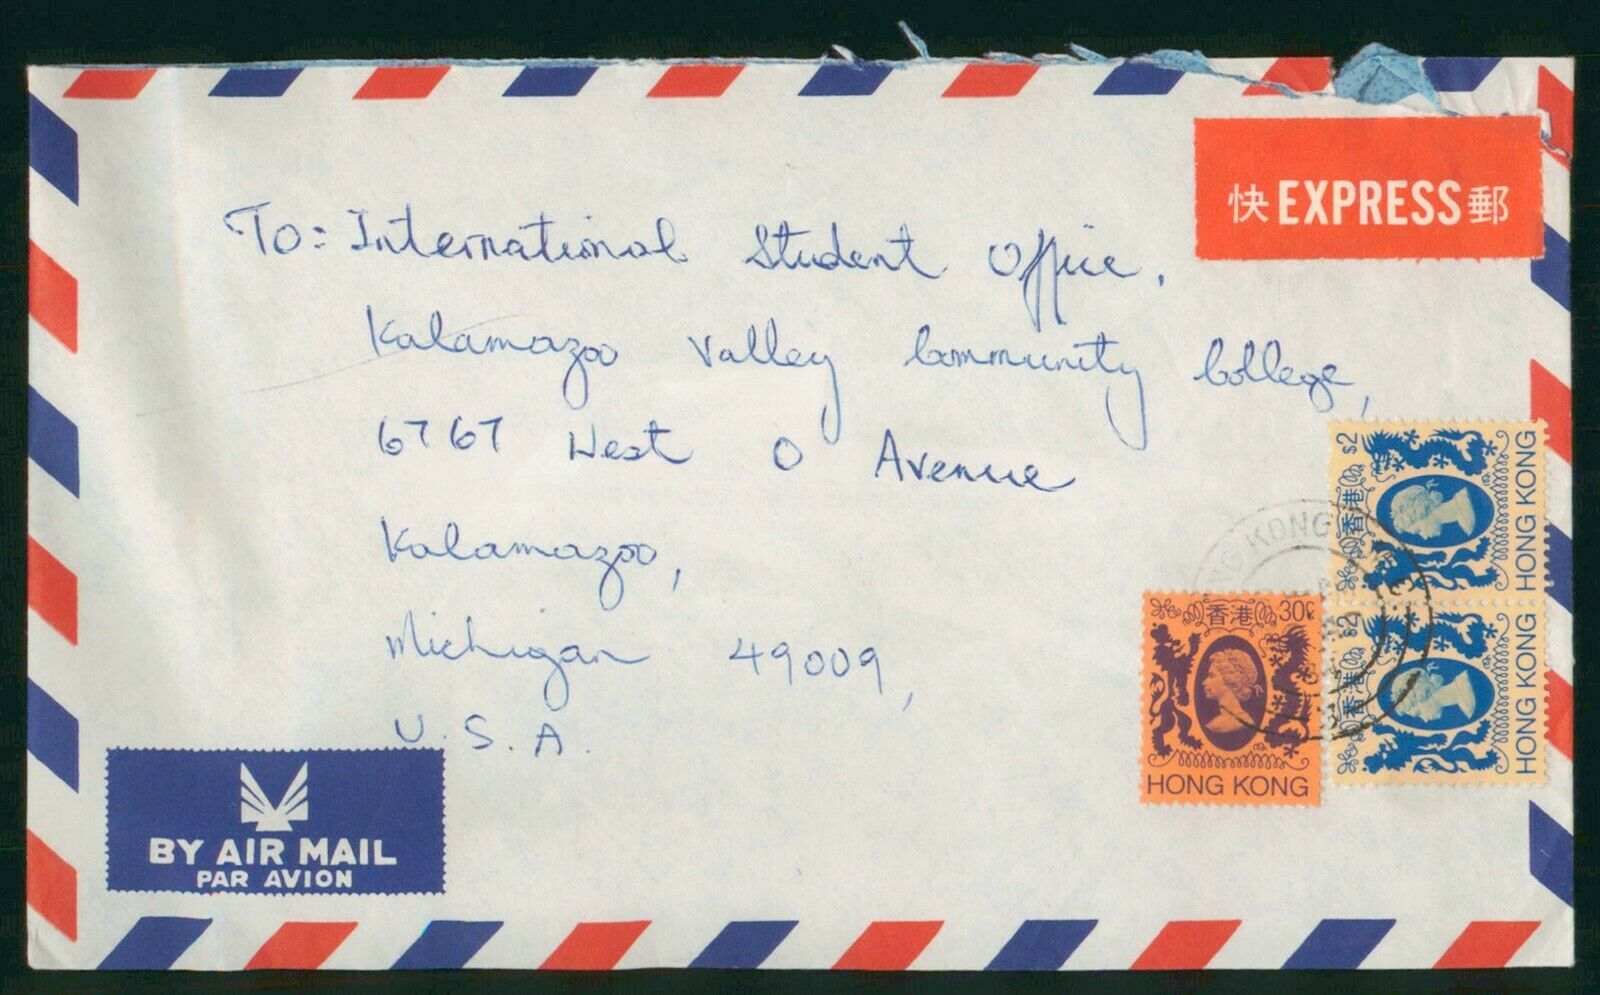 快 EXPRESS 郵
To: International Student Office,
Kalamazoo Valley Community College,
6767 West O Avenue
Kalamazoo,
Michigan 49009,
U.S.A.
$2 香港 HONG KONG
$2 香港 HONG KONG
HONG KONG
香港 30¢
HONG KONG
BY AIR MAIL
PAR AVION